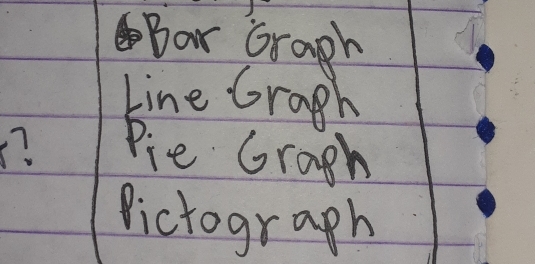 Bar Graph
Line Graph
Pie Graph
?
Pictograph